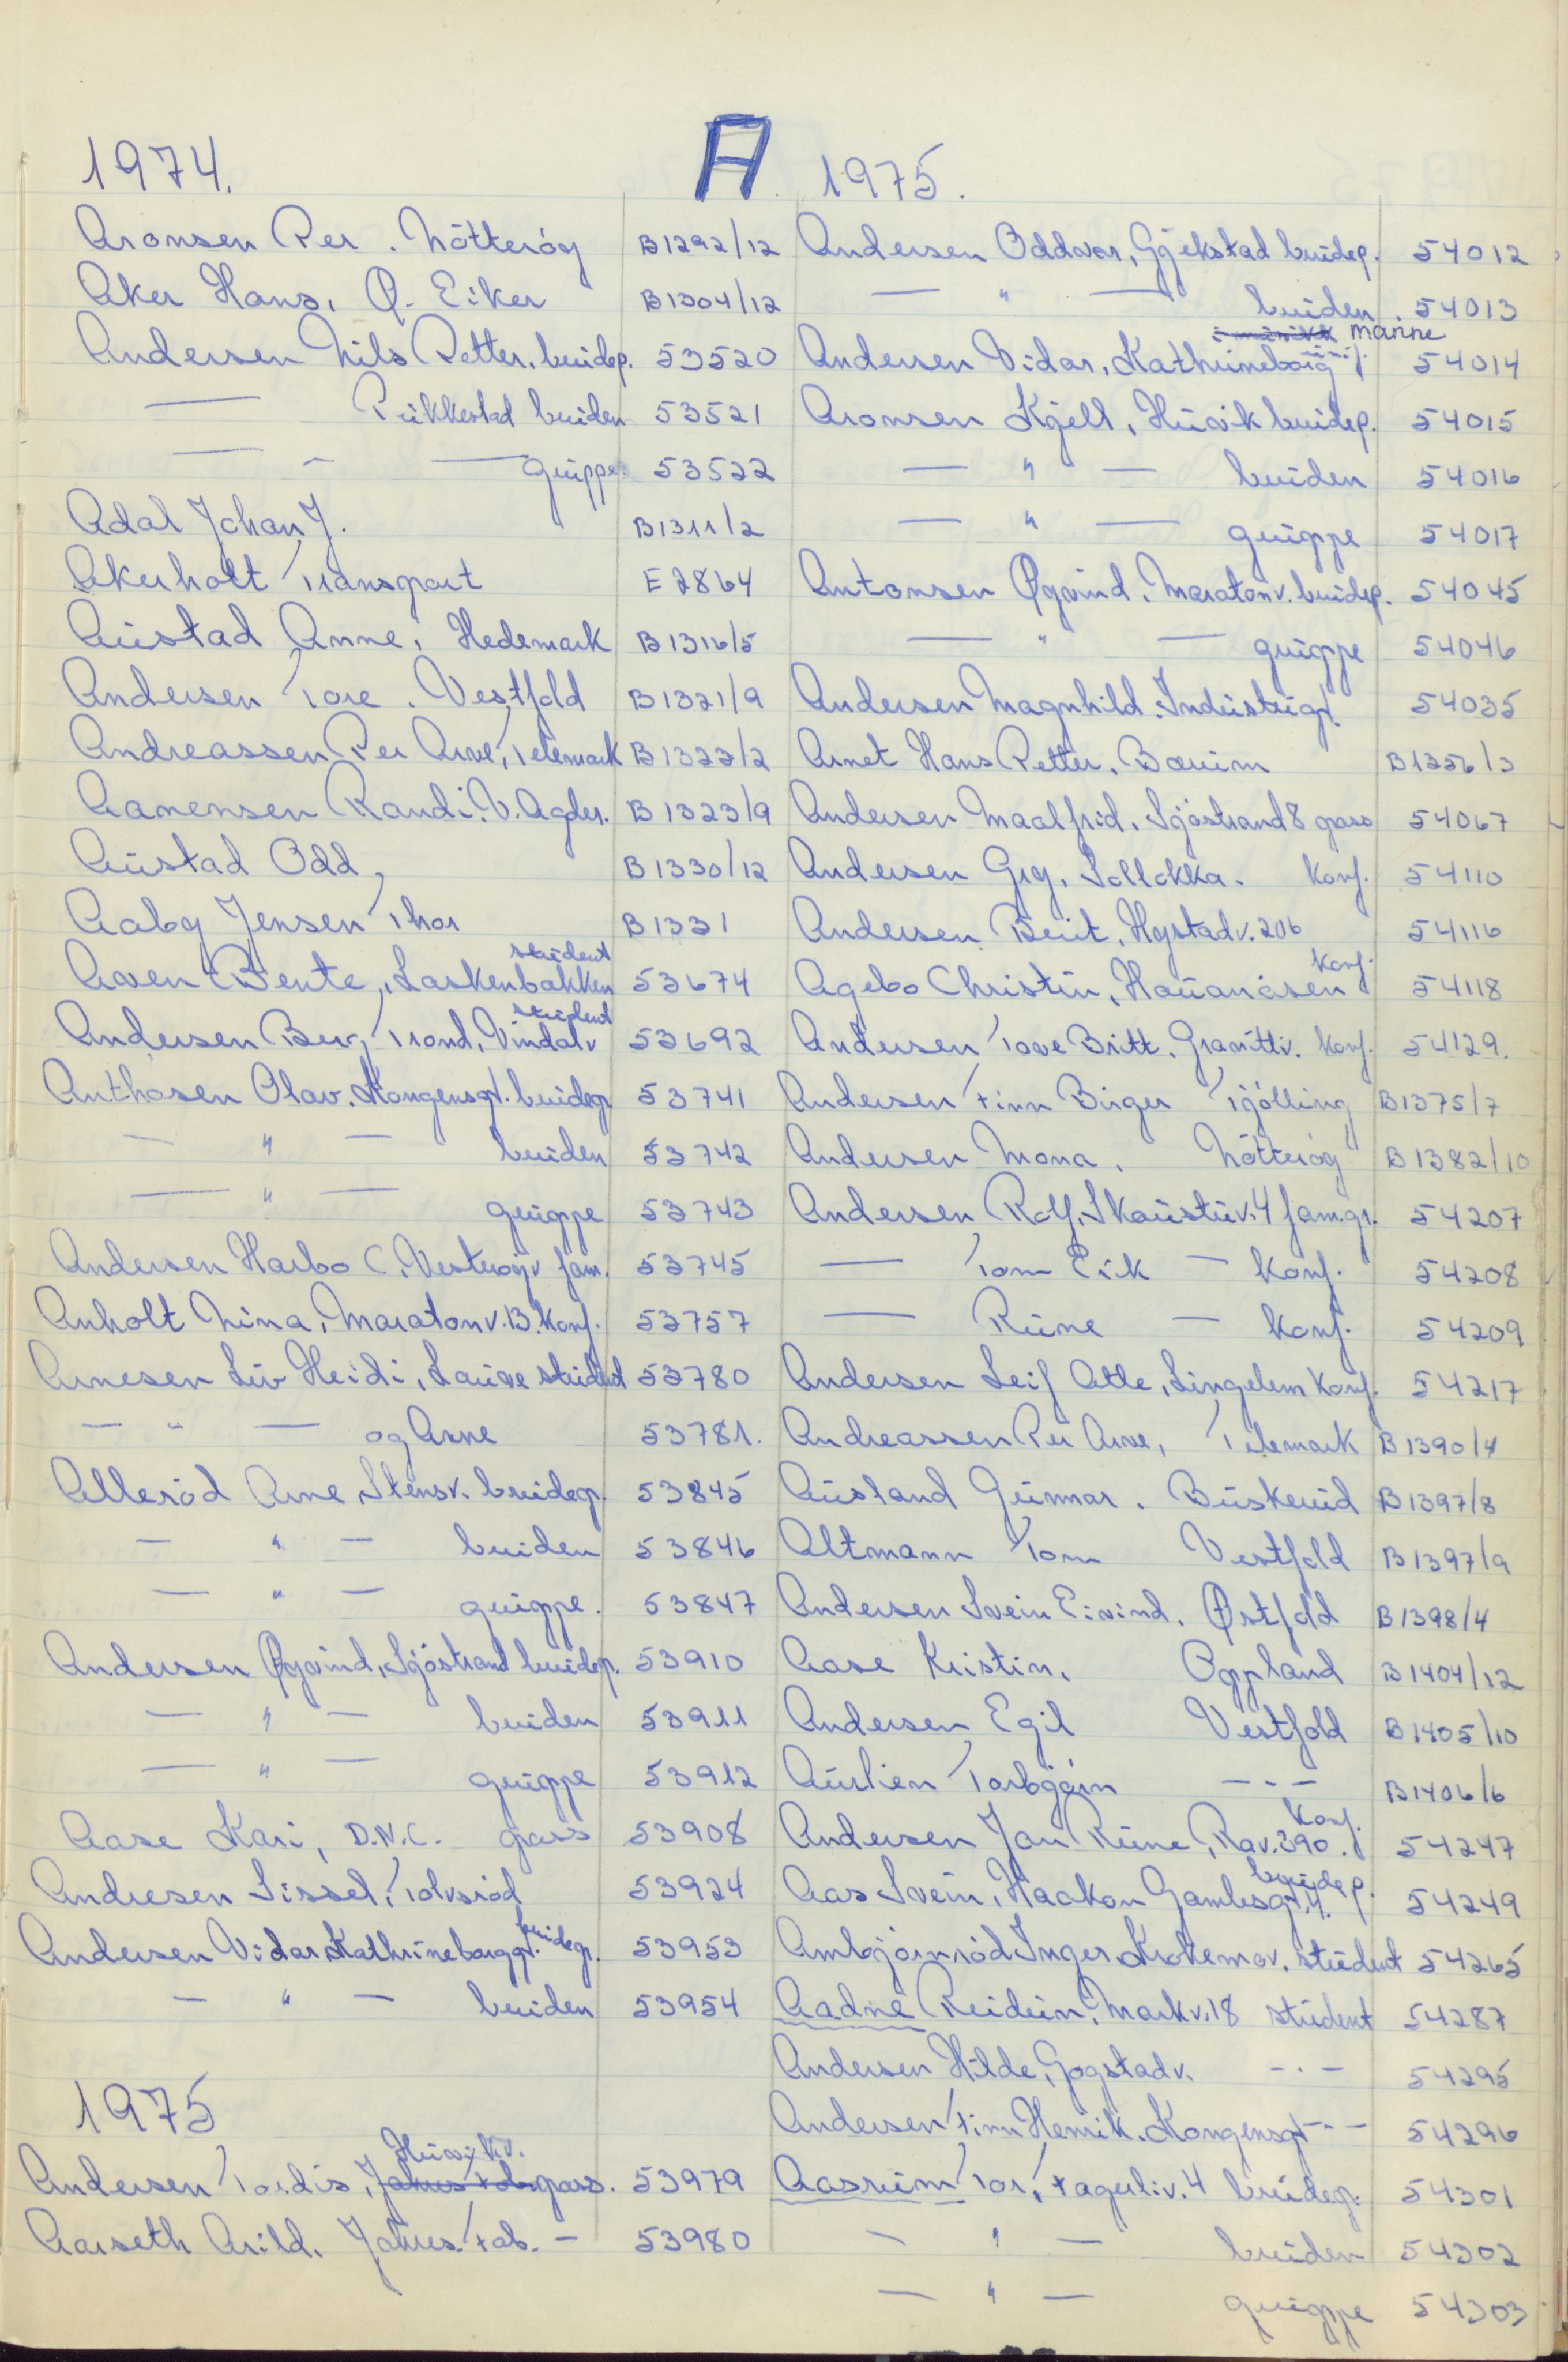 A
1974.
Aronsen Per. Nötteröy B1292/12
Aker Hans, Ø. Eiker B1304/12
Andersen Nils Petter. brudep. 53520
— Rükkestad bruden 53521
— " — gruppe 53522
Adal Johan J. B1311/2
Akerholt Transport E 2864
Austad Anne, Hedemark B1316/5
Andersen Tore. Vestfold B1321/9
Andreassen Per Arve, Telemark B1322/2
Aamensen Randi. V. Agder. B1323/9
Austad Odd, B1330/12
Aaby Jensen Thor B1331
Aasen Bente, Laskenbakken student 53674
Andersen Berg Trond, Vindalv student 53692
Anthosen Olav. Kongensgt. brudep. 53741
— " — bruden 53742
— " — gruppe 53743
Andersen Harbo C. Vesteröyv fam. 53745
Anholt Nina, Maratonv. 13. konf. 53757
Arnesen Liv Heidi, Lauve student 53780
— " — og Arne 53781.
Alleröd Arne Stensv. brudep. 53845
— " — bruden 53846
— " — gruppe. 53847
Andersen Øyvind, Sjöstrand brudep. 53910
— " — bruden 53911
— " — gruppe 53912
Aase Kari, D.N.C. pass 53908
Andresen Sissel, Tolvsröd 53924
Andersen Vidar Kathrineborggt. brudep. 53953
— " — bruden 53954
1975
Andersen Tordis, Jahres Fab Husvikv. pass. 53979
Aarseth Arild. Jahres. Fab. — 53980
1975.
Andersen Oddvar, Gjekstad brudep. 54012
— " — bruden. 54013
Andersen Vidar, Kathrineborg manne 54014
Aronsen Kjell, Husvik brudep. 54015
— " — bruden 54016
— " — gruppe 54017
Antonsen Øyvind. Maratonv. brudep. 54045
— " — gruppe 54046
Andersen Magnhild. Industrigt. 54035
Arnet Hans Petter. Bærum B1356/3
Andersen Maalfrid, Sjöstrand 8 pass 54067
Andersen Gry, Solløkka. konf. 54110
Andersen Berit, Hystadv. 206 54116
Agebo Christin, Hauanåsen konf. 54118
Andersen Tove Britt. Granittv. konf. 54129.
Andersen Finn Birger Tjölling B1375/7
Andersen Mona. Nötteröy B1382/10
Andersen Rolf, Skaustuv. 4 fam.gr. 54207
— Tom Erik — konf. 54208
— Rune — konf. 54209
Andersen Leif Atle, Lingelem konf. 54217
Andreassen Per Arve, Telemark B1390/4
Ausland Gunnar. Buskerud B1397/8
Altmann Tom Vestfold B1397/9
Andersen Svein Eivind. Østfold B1398/4
Aase Kristin, Oppland B1404/12
Andersen Egil Vestfold B1405/10
Aurlien Torbjörn — " — B1406/6
Andersen Jan Rune, Rav. 390. konf. 54247
Aas Svein, Haakon Gamlesgt. 4. brudep. 54249
Ambjörnröd Inger Krokemov. student 54265
Aadne Reidun, Markv. 18 student 54287
Andersen Hilde, Gogstadv. — " — 54295
Andersen Finn Henrik. Kongensgt — " — 54296
Aasrum Tor, Fagerliv. 4 brudep. 54301
— " — bruden 54302
— " — gruppe 54303